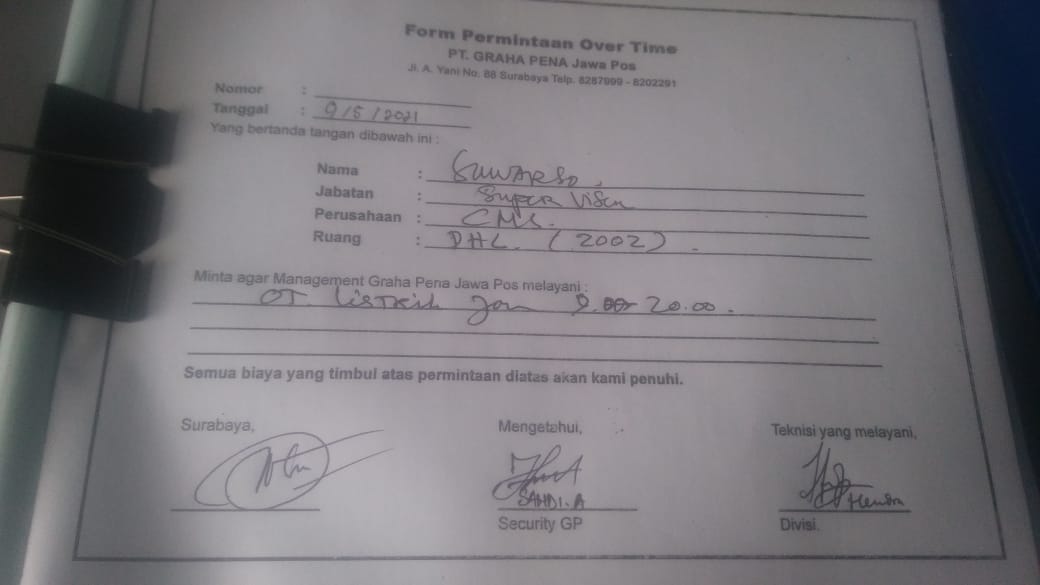 Form Permintaan Over Time
PT. GRAHA PENA Jawa Pos
Jl. A. Yani No. 88 Surabaya Telp. 8287999 - 8202291
Nomor :
Tanggal : 9/5/2021
Yang bertanda tangan dibawah ini :
Nama : SUWARSO,
Jabatan : Super Visor
Perusahaan : CMS.
Ruang : DHL. (2002).
Minta agar Management Graha Pena Jawa Pos melayani :
OT. Listrik Jam 9.00- 20.00.
Semua biaya yang timbul atas permintaan diatas akan kami penuhi.
Surabaya, Mengetahui, Teknisi yang melayani,
SAHDI.A Hendra
Security GP Divisi.